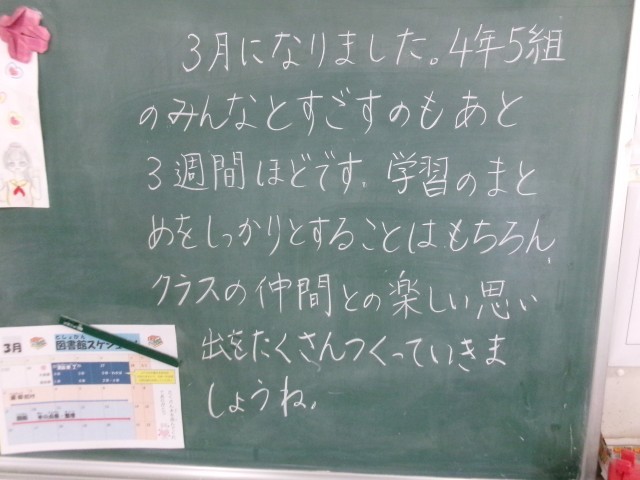 3月になりました。4年5組
のみんなとすごすのもあと
3週間ほどです。学習のまと
めをしっかりとすることはもちろん、
クラスの仲間との楽しい思い
出をたくさんつくっていきま
しょうね。
3月
としょかん
図書館スケジュール